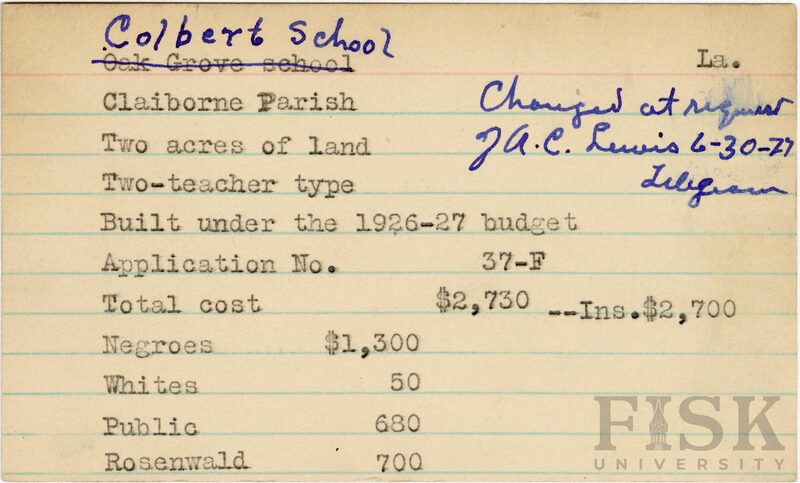 Colbert School
Oak Grove school
La.
Claiborne Parish
Changed at request
Two acres of land
of A.C. Lewis 6-30-27
Two-teacher type
Telegram
Built under the 1926-27 budget
Application No. 37-F
Total cost $2,730 --Ins.$2,700
Negroes $1,300
Whites 50
Public 680
Rosenwald 700
FISK
UNIVERSITY